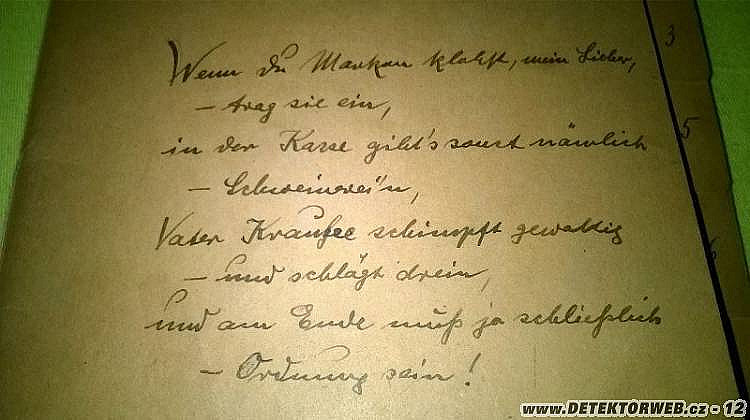 Wenn du Marken klebst, mein Lieber,
– trag sie ein,
in der Kasse gibt's sonst nämlich
– Schweinerei'n,
Vater Krausee schimpft gewaltig
– und schlägt drein,
und am Ende muß ja schließlich
– Ordnung sein!
3
5
6
www.DETEKTORWEB.cz - 12